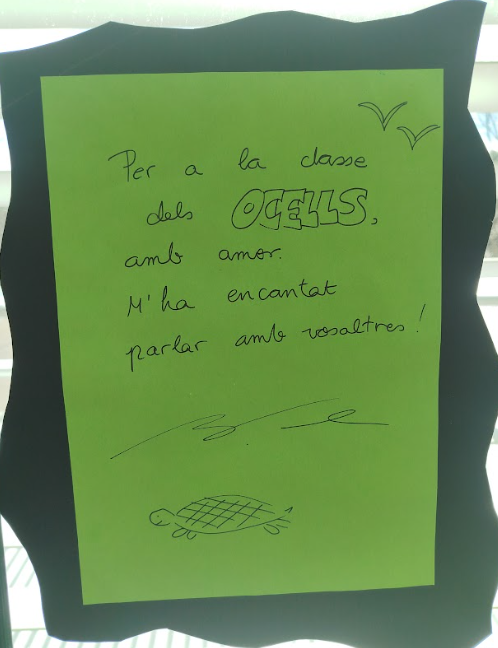 Per a la classe
dels OCELLS,
amb amor.
M'ha encantat
parlar amb vosaltres!